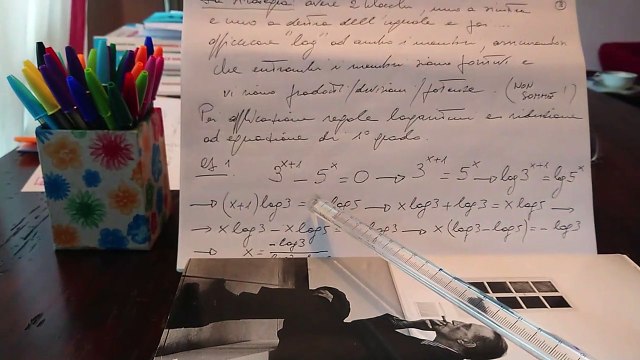 avere 2 blocchi, uno a sinistra
e uno a destra dell'uguale e poi ...
applicare "log" ad ambo i membri, assumendo
che entrambi i membri siano positivi e
vi siano prodotti/divisioni/potenze. (NON SOMME!)
Poi applicazione regole logaritmi e riduzione
ad equazione di 1° grado.
es. 1 3^{x+1} - 5^x = 0 → 3^{x+1} = 5^x → log 3^{x+1} = lg 5^x
→ (x+1) log 3 = log 5 → x log 3 + log 3 = x log 5 →
→ x log 3 - x log 5 = log 3 → x (log 3 - log 5) = - log 3
→ x = -log 3